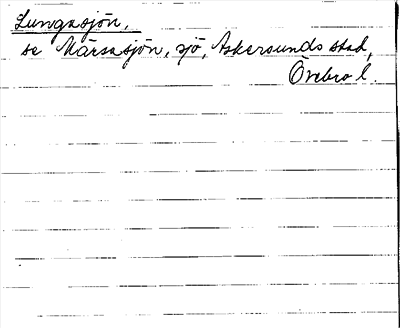 Lungasjön,
se Mårsasjön, sjö, Askersunds stad,
Örebro l.